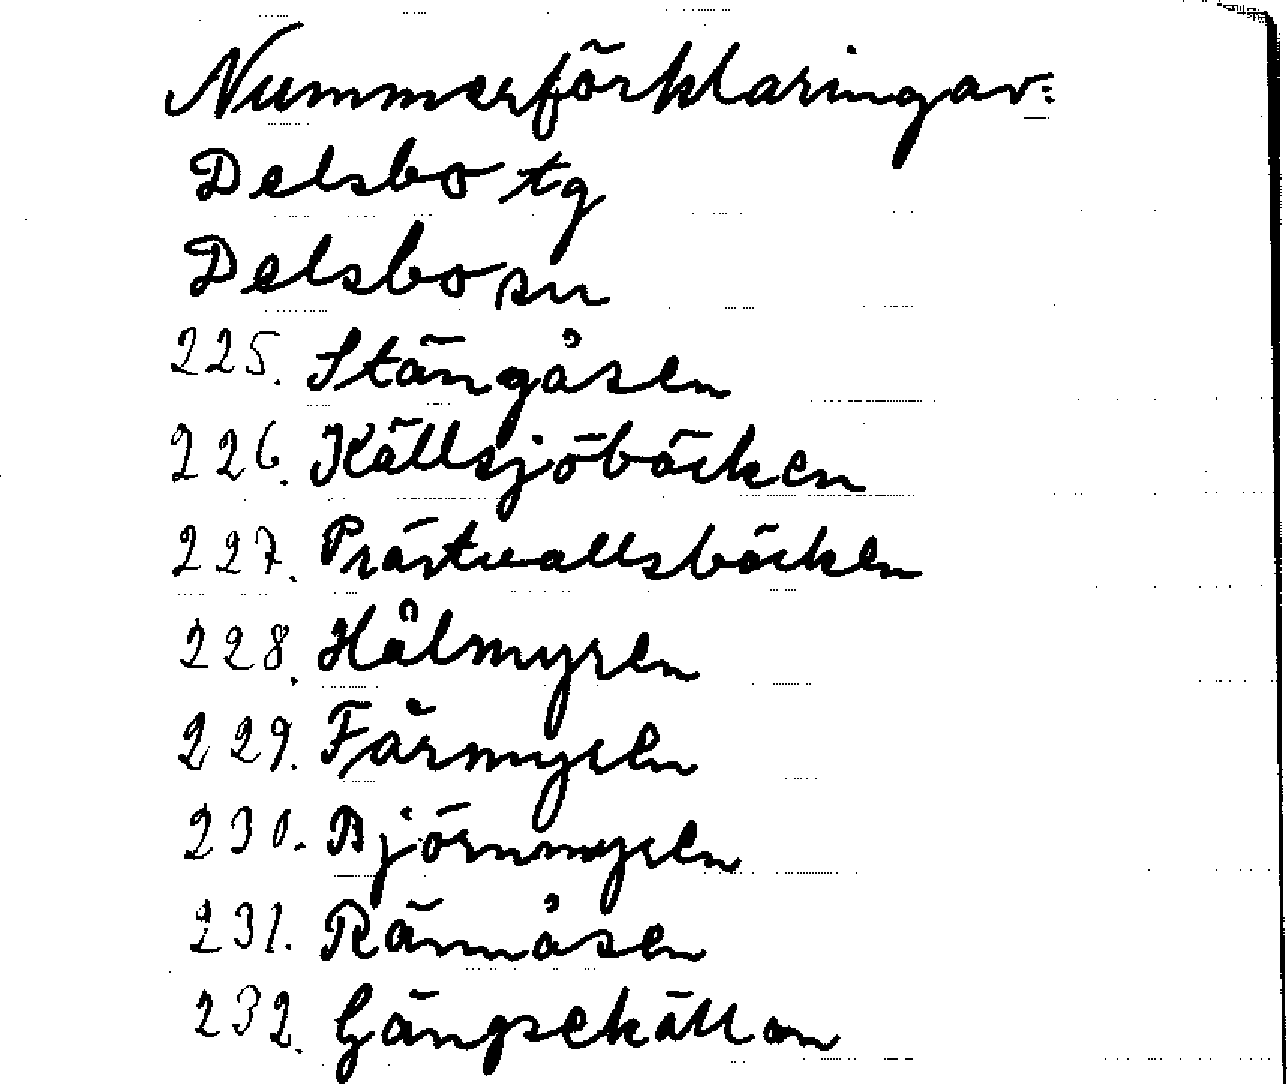 Nummerförklaring av:
Delsbo tg
Delsbo sn
225. Stängåsen
226. Källsjöbäcken
227. Prästvallsbäcken
228. Hålmyren
229. Fårmyren
230. Björnmyren
231. Rännåsen
232. Gängsekällan